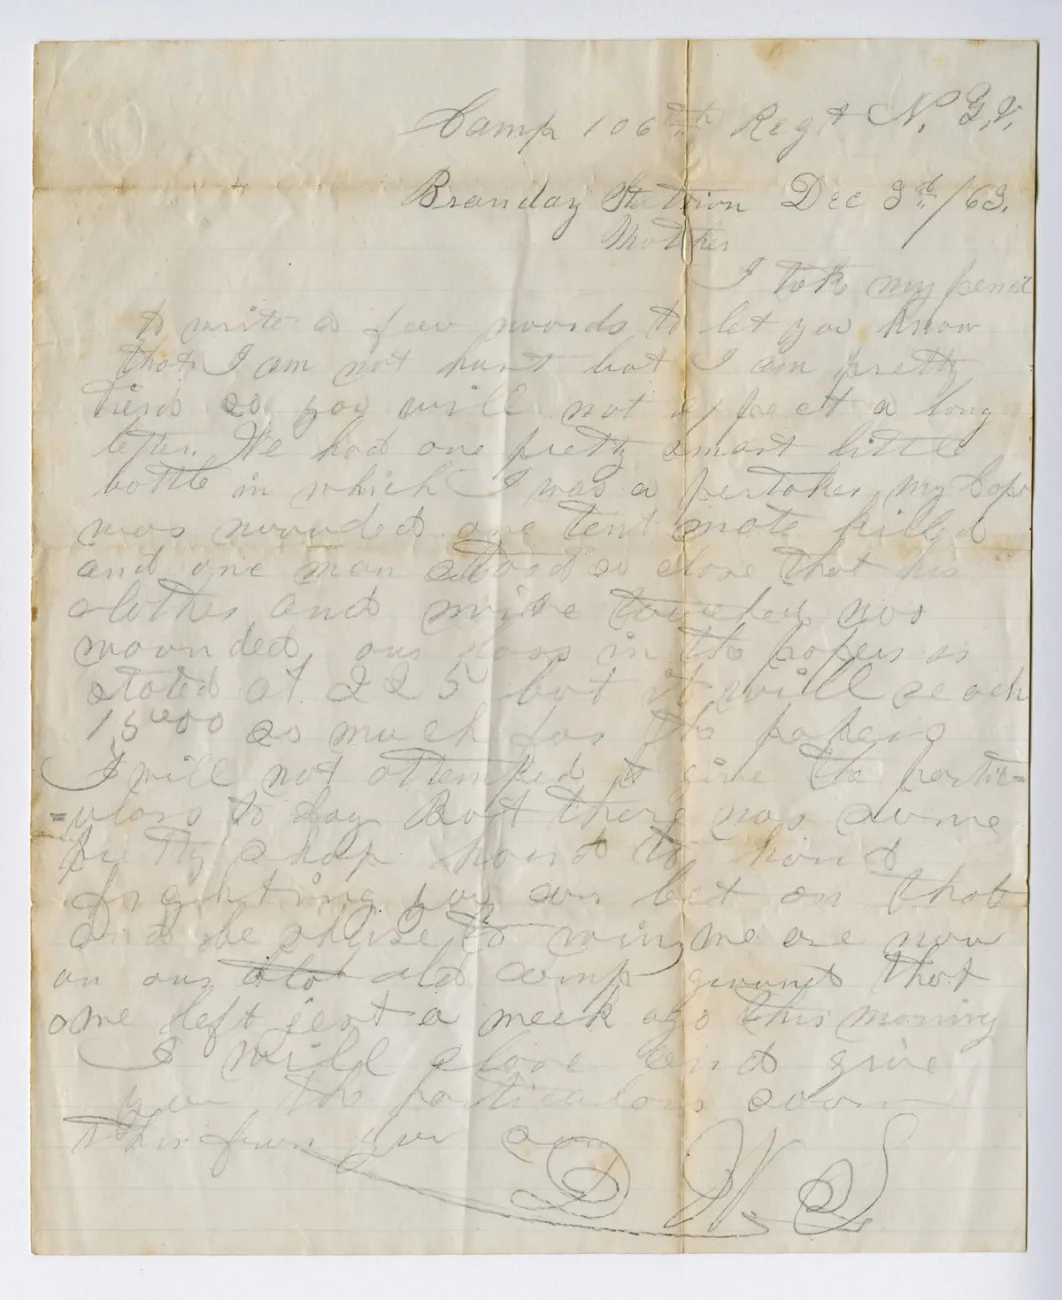 Camp 106th Regt N. Y. V.
Branday Station Dec 3d/63.
Mother
I take my pencil
to write a few words to let you know
that I am not hurt but I am pretty
tierd so you will not expect a long
letter. We had one pretty smart little
battle in which I was a pertaker, my Capt
was wounded one tent mate killed
and one man stood so close that his
clothes and mine touched was
wounded, our loss in the papers is
stated at 225 but it will reach
1500 so much for the papers
I will not attempted to give the partic=
=ulars to day But there was some
pretty shap hand to hand
fighting you can bet on that
and be shure to win, we are now
on our old camp ground that
we left jest a week ago this morning
I will close and give
you the particulars soon
This from your son
D W S